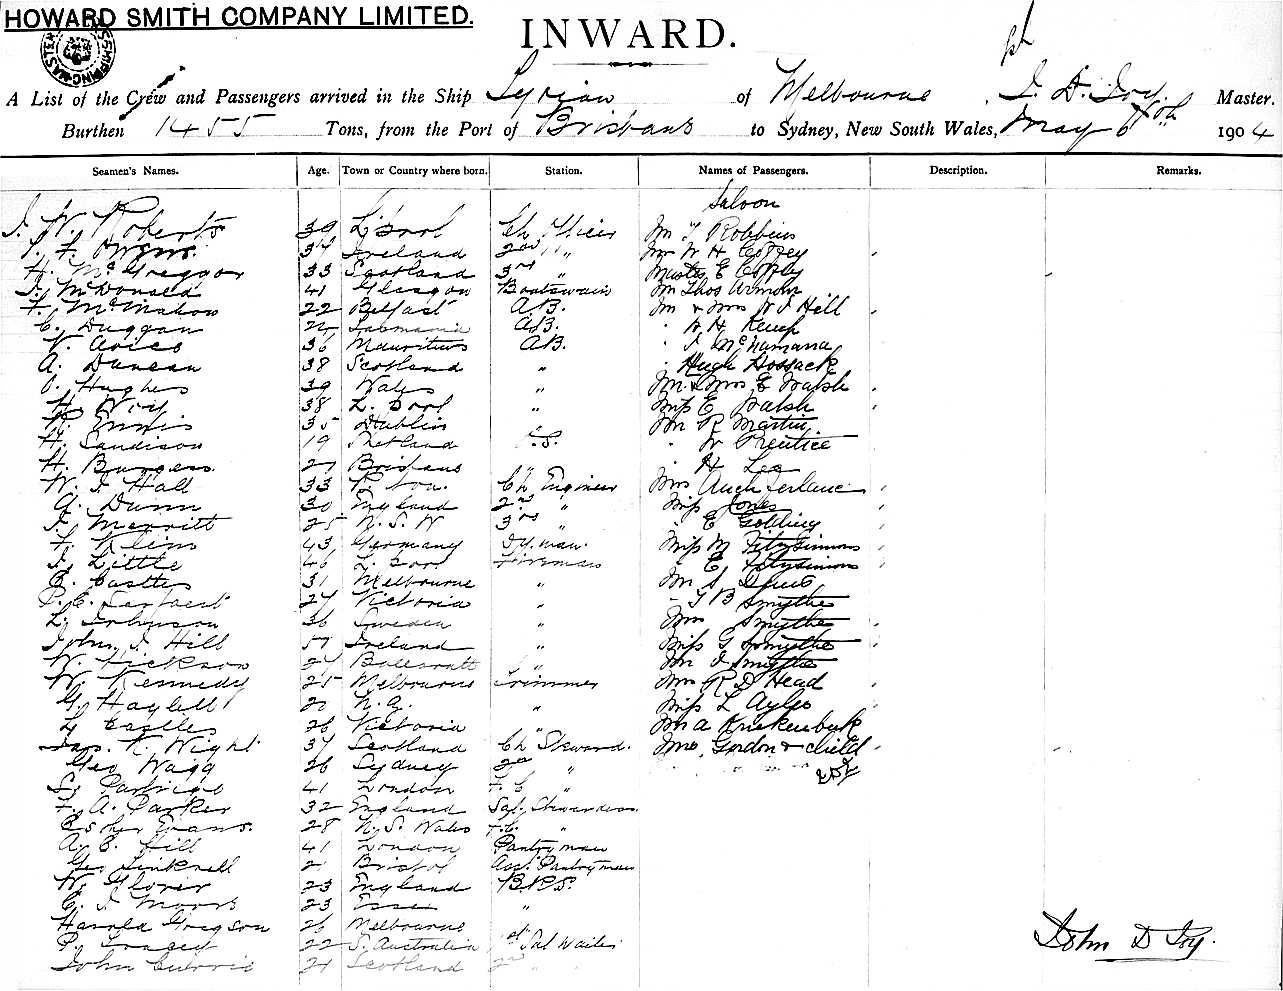 HOWARD SMITH COMPANY LIMITED.
INWARD.
A List of the Crew and Passengers arrived in the Ship Syrian of Melbourne, J. D. Joy. Master.
Burthen 1455 Tons, from the Port of Brisbane to Sydney, New South Wales, May 1904
Seamen's Names. Age. Town or Country where born. Station. Names of Passengers. Description. Remarks.
Saloon
J. W. Roberts 39 L'pool Ch Officer Mr T Robbins
Owens 34 Ireland 2nd " Mr W H Coffey
H. McGreggor 33 Scotland 3rd " Master E Coffey
J. McDonald 41 Glasgow Boatswain Mr Thos
F. McMahon 22 Belfast A.B. Mr & Mrs W J Hill
C. Duggan Tasmania A.B. " W H Kemp
V. Aries 36 Mauritius A.B. " J McNamara
A. Duncan 38 Scotland " " Hugh Hossack
O. Hughes 39 Wales " Mr & Mrs E Walsh
H. 38 L. pool " Miss E Walsh
R. Ennis 35 Dublin " Mr R Martin
H. Sandison 19 Shetland " W Prentice
H. Burgess 27 Brisbane " " H Lee
W. J. Hall 33 Ch Engineer Mrs Auchterlanie
A. Dunn 30 England 2nd " Miss Jones
J. Merritt 25 N. S. W 3rd " " E Golding
F. Klein 43 Germany Dy. man. Miss M Fitzsimmons
J. Little 46 L. pool Fireman " E Fitzsimmons
R. Castles 31 Melbourne " Mr S
P. C. 27 Victoria " " T B Smythe
L. Johnson 36 Sweden " Mrs Smythe
John J. Hill 57 Ireland " Miss G Smythe
W. Dickson 24 Ballaratt " Mr J Smythe
W. Kennedy 25 Melbourne Trimmer Mrs R D Head
G. Haylett N. Z. " Miss L Ayles
F. Castles 26 Victoria " Mr A
Jas. K. Wight 37 Scotland Ch Steward. Mrs Gordon & child
Geo Wagg 26 Sydney 2nd "
41 London F. C
F. A. Parker 32 England Sal. Stewardess
Esther Evans. 28 N. S. Wales F.C. "
A. E. Hill 41 London Pantryman
Geo 21 Bristol Ass. Pantryman
W. Glover 23 England B.R.S.
C. J. Moors 23 Essex "
Harold Gregson 26 Melbourne
P. Tracey 22 S. Australia 1st Sal Waiter
John Currie 21 Scotland 2nd " "
John D Joy.